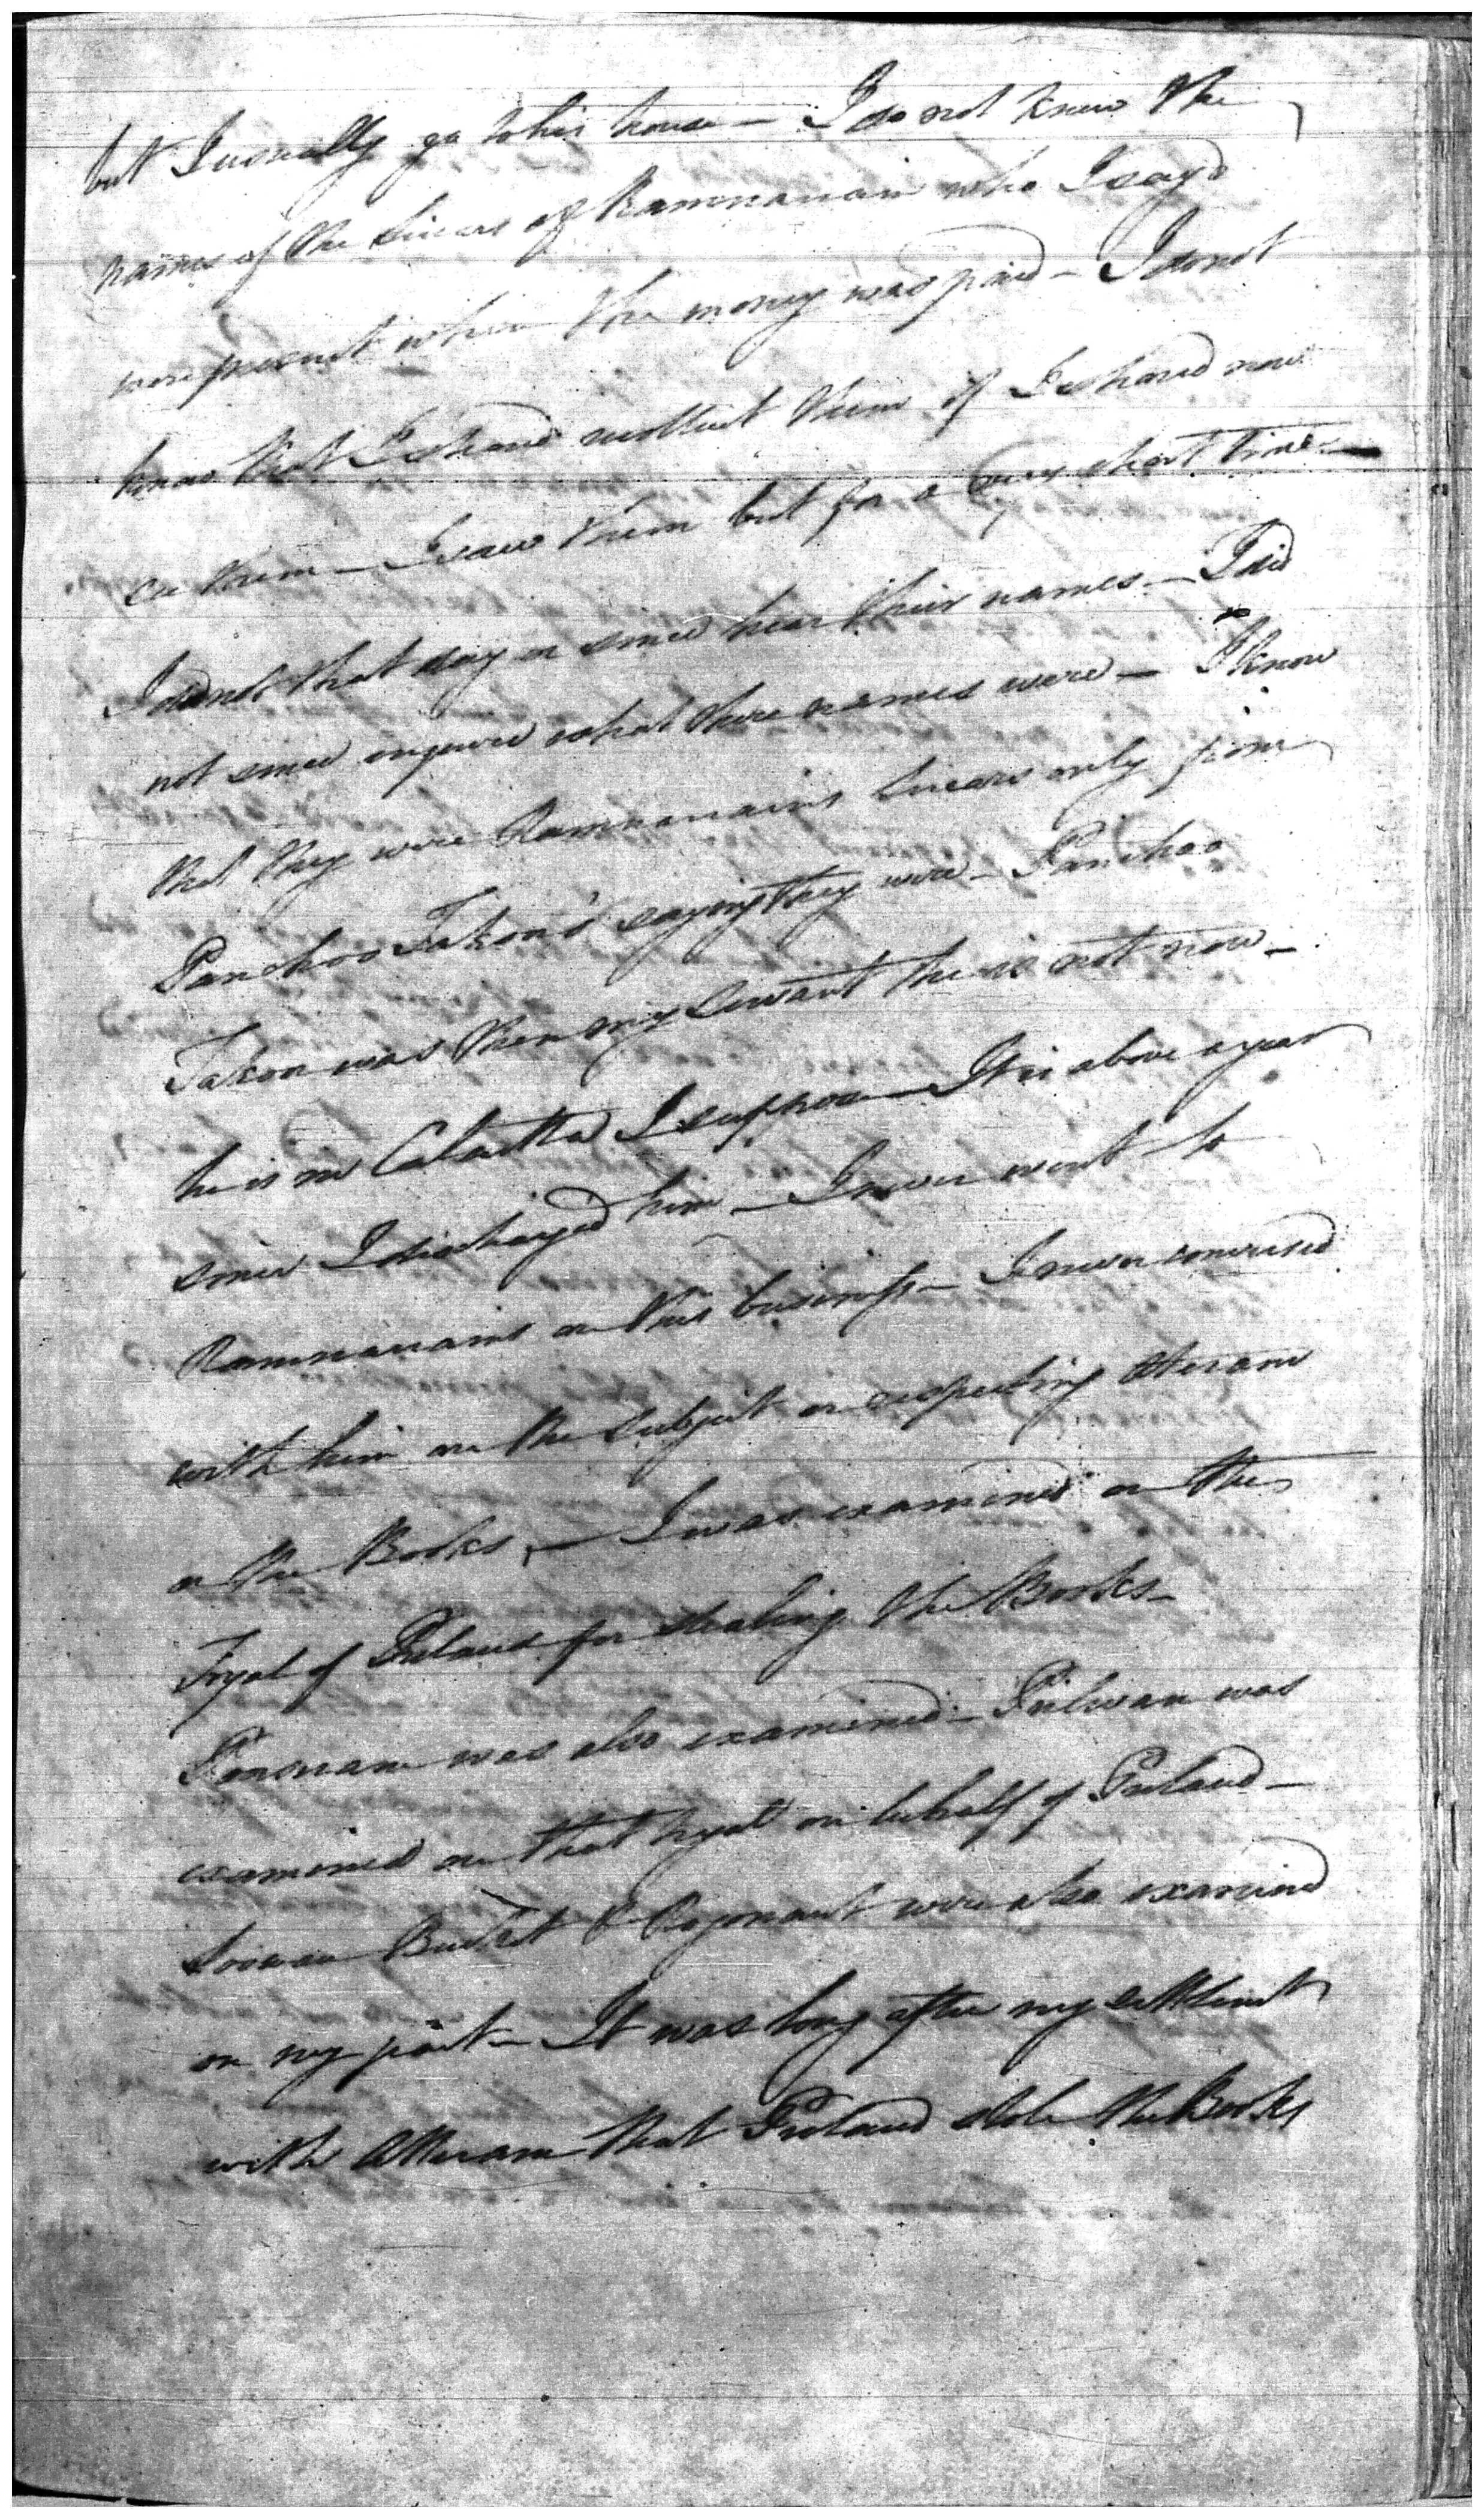 but I usually go to his house — I do not know the
names of the Sircars of Ramnarain who I say'd
were present when the money was paid — I do not
know that I should recollect them if I should now
see them — I saw them but for a very short time —
I did not that day or since hear their names — I did
not since enquire what there names were — I know
that they were Ramnarains Sircars only from
Panchoo Takoor's saying they were — Panchoo
Takoor was then my Servant he is not now —
he is in Calcutta I suppose — It is above a year
since I discharged him — I never went to
Ramnarains on this business — I never conversed
with him on the subject or respecting Atteram
or the Books — I was examined on the
Tryal of Pretaub for stealing the Books —
was also examined — was
examined on that tryal on behalf of
Buckit & were also examined
on my part — It was long after my settlement
with Atteram that stole the Books